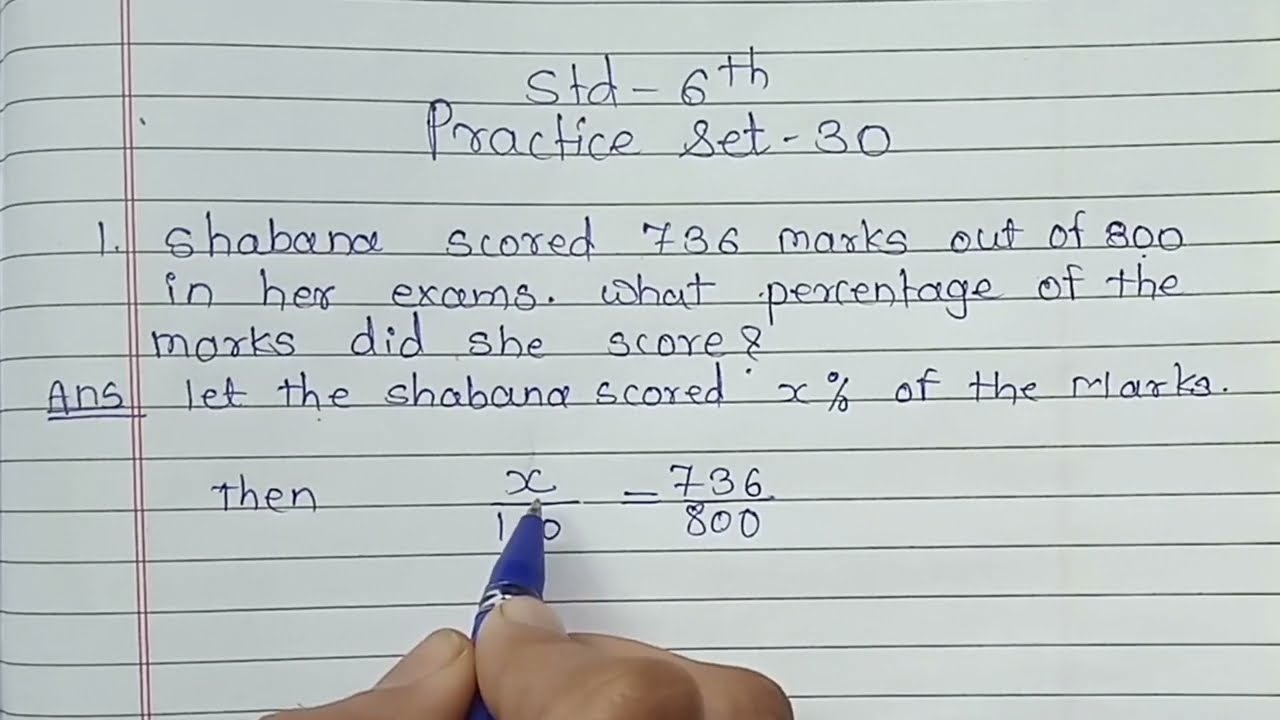 Std - 6th
Practice Set - 30
1. Shabana scored 736 marks out of 800
in her exams. What percentage of the
marks did she score?
Ans let the Shabana scored x% of the Marks.
then x/100 = 736/800